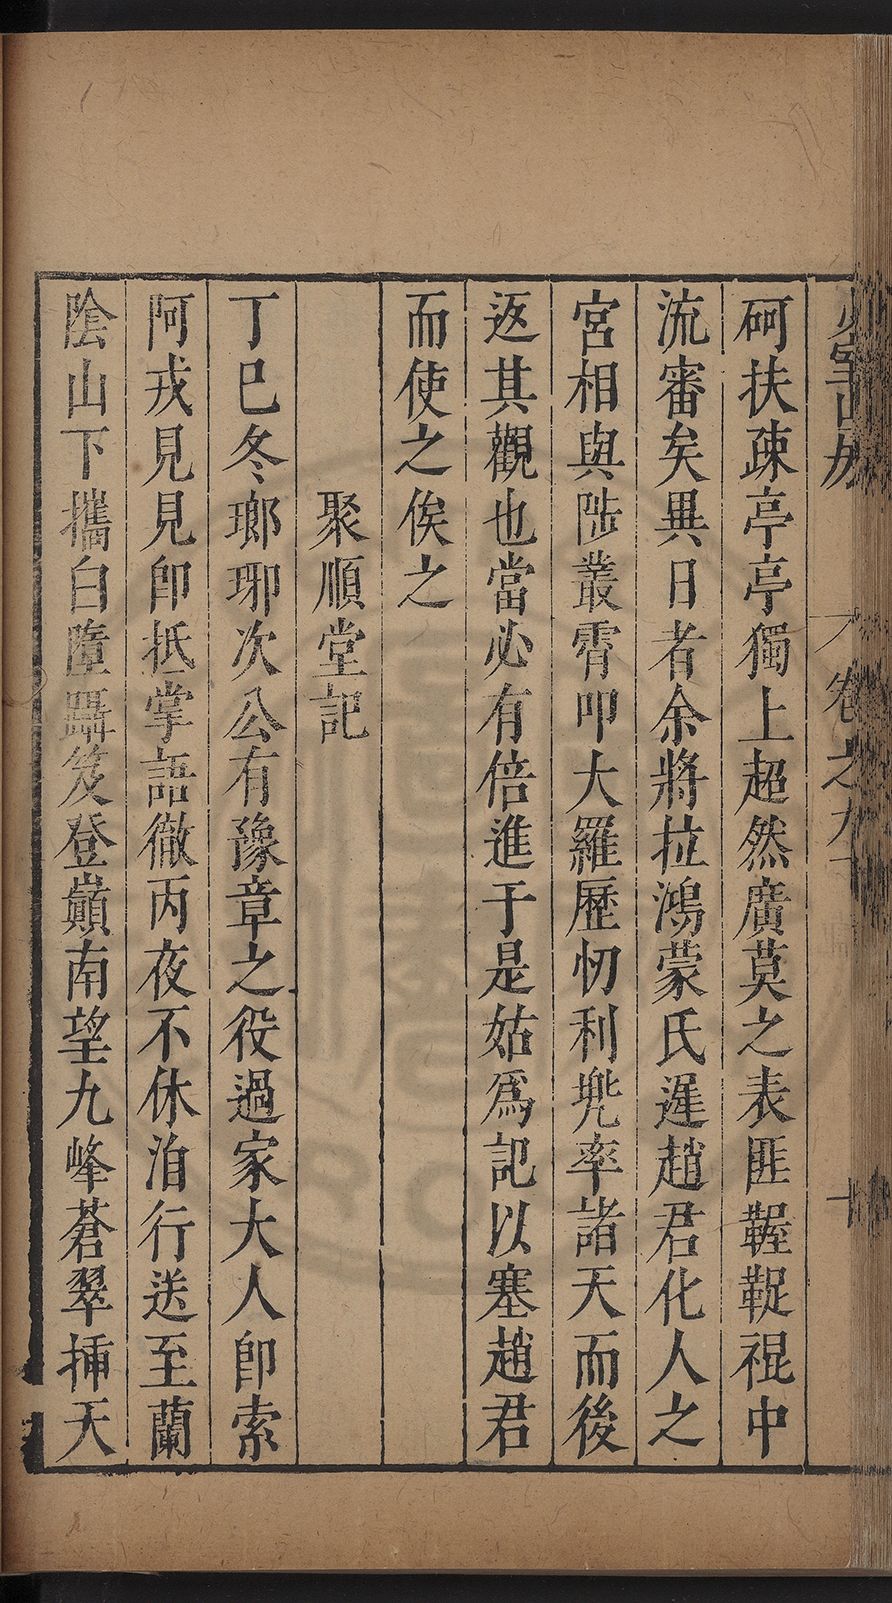 少室山房
卷之九十
十
砢扶疎亭亭獨上超然廣莫之表匪齷齪裩中
流審矣異日者余將拉鴻蒙氏遲趙君化人之
宮相與陟叢霄叩大羅歷忉利兠率諸天而後
返其觀也當必有倍進于是姑爲記以塞趙君
而使之俟之
聚順堂記
丁巳冬瑯琊次公有豫章之役過家大人卽索
阿戎見見卽抵掌語徹丙夜不休洎行送至蘭
陰山下攜白墮躡笈登巔南望九峰蒼翠揷天